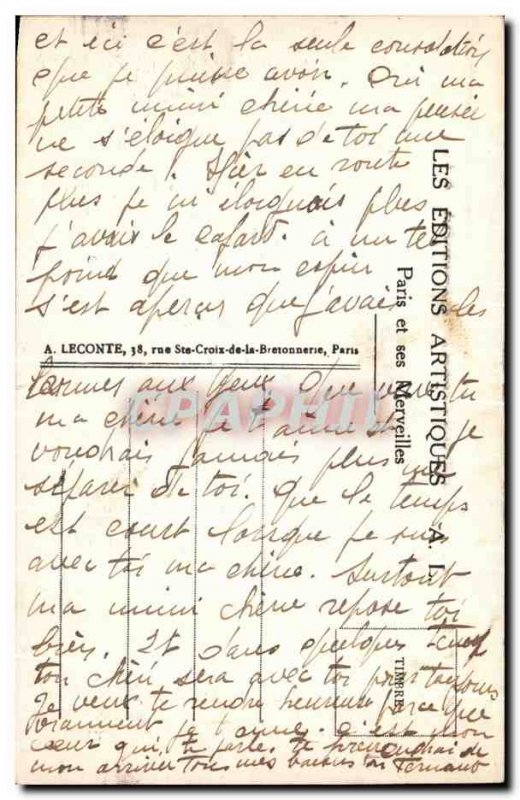 et ici c'est la seule consolation
que je puisse avoir. Oui ma
petite mimi chérie ma pensée
ne s'éloigne pas de toi une
seconde! Hier en route
plus je m'éloignais plus
j'avais le cafard. à un tel
point que mon
s'est aperçus que j'avais les
A. LECONTE, 38, rue Ste-Croix-de-la-Bretonnerie, Paris
larmes aux yeux. Que veux tu
ma chérie je t'aime et je
voudrais jamais plus me
séparer de toi. Que le temps
est court lorsque je suis
avec toi ma chérie. Surtout
ma mimi chérie repose toi
bien. Et dans quelques temps
ton chéri sera avec toi pour toujours
Je veux te rendre heureuse parce que
vraiment je t'aime. C'est mon
cœur qui te parle. te
mon arrivée tous mes baisers ton Fernand
LES ÉDITIONS ARTISTIQUES A. L.
Paris et ses Merveilles
TIMBRE
CPAPHIL